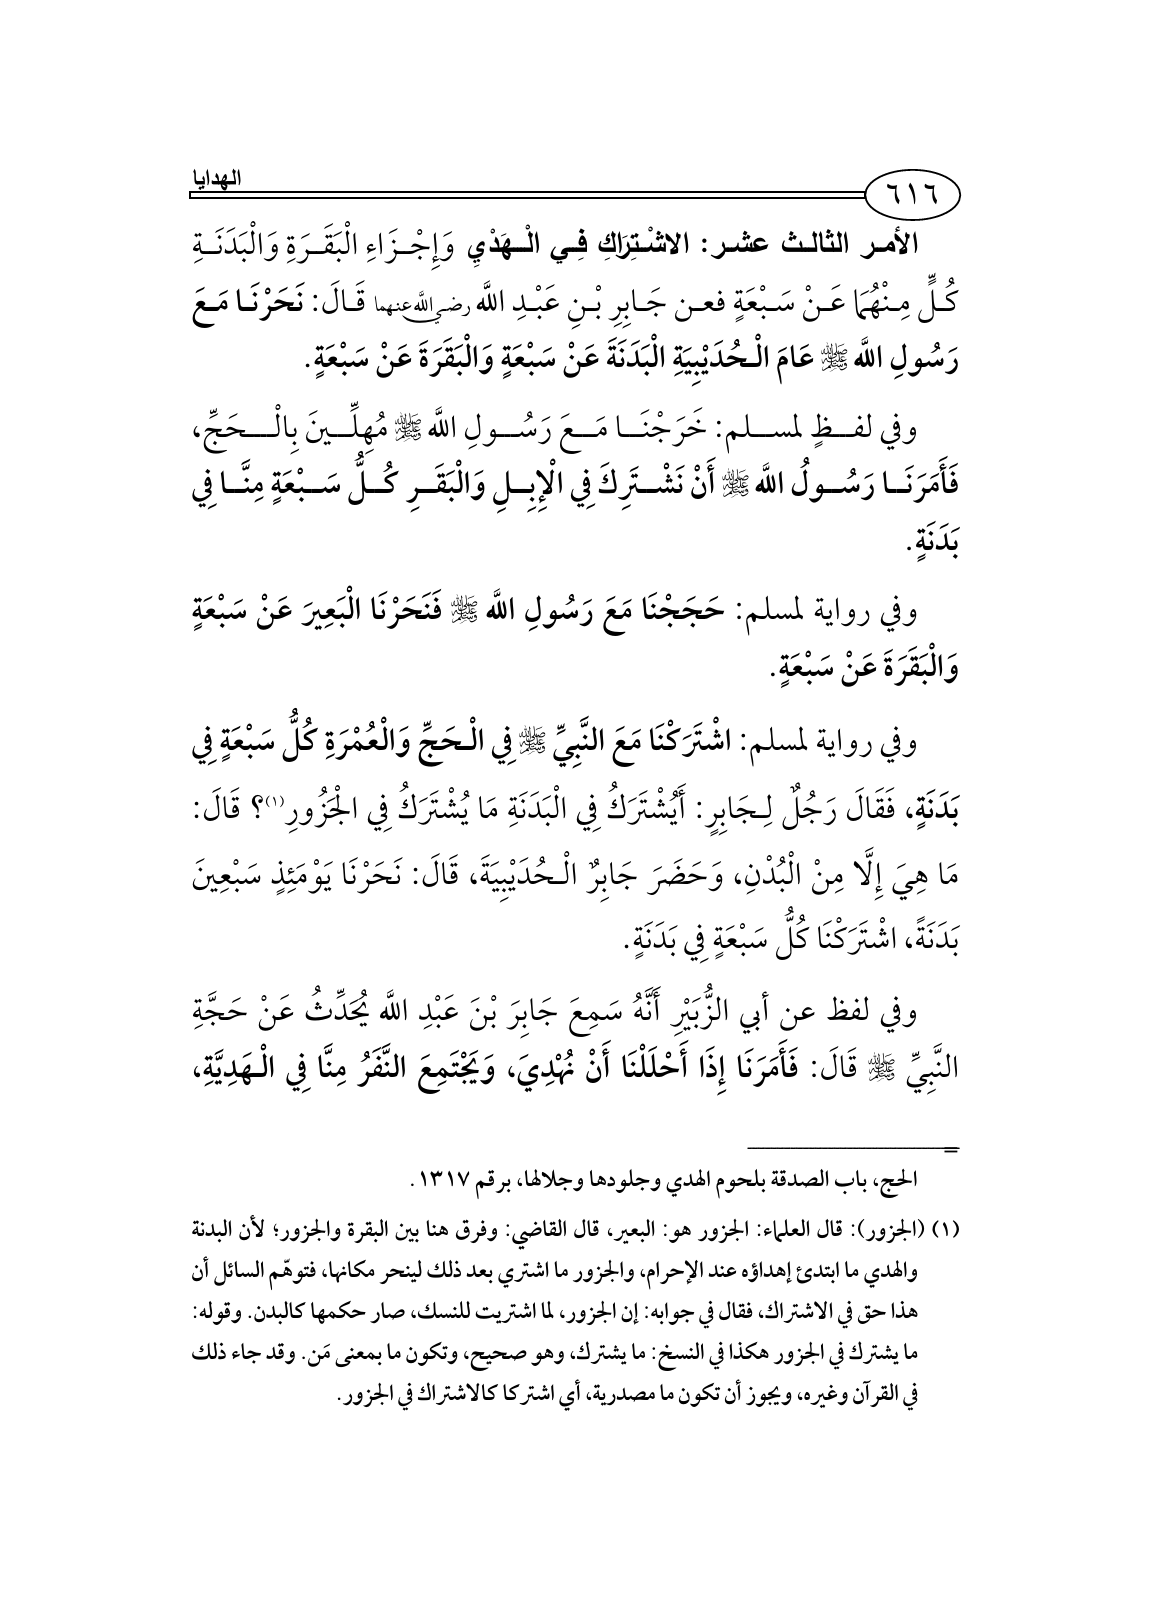 الهدايا
٦١٦
الأمر الثالث عشر: الاشْتِرَاكِ فِي الْهَدْيِ وَإِجْزَاءِ الْبَقَرَةِ وَالْبَدَنَةِ
كُلٍّ مِنْهُمَا عَنْ سَبْعَةٍ فعن جَابِرِ بْنِ عَبْدِ اللَّه رضي الله عنهما قَالَ: نَحَرْنَا مَعَ
رَسُولِ اللَّه ﷺ عَامَ الْحُدَيْبِيَةِ الْبَدَنَةَ عَنْ سَبْعَةٍ وَالْبَقَرَةَ عَنْ سَبْعَةٍ.
وفي لفظٍ لمسلم: خَرَجْنَا مَعَ رَسُولِ اللَّه ﷺ مُهِلِّينَ بِالْحَجِّ،
فَأَمَرَنَا رَسُولُ اللَّه ﷺ أَنْ نَشْتَرِكَ فِي الْإِبِلِ وَالْبَقَرِ كُلُّ سَبْعَةٍ مِنَّا فِي
بَدَنَةٍ.
وفي رواية لمسلم: حَجَجْنَا مَعَ رَسُولِ اللَّه ﷺ فَنَحَرْنَا الْبَعِيرَ عَنْ سَبْعَةٍ
وَالْبَقَرَةَ عَنْ سَبْعَةٍ.
وفي رواية لمسلم: اشْتَرَكْنَا مَعَ النَّبِيِّ ﷺ فِي الْحَجِّ وَالْعُمْرَةِ كُلُّ سَبْعَةٍ فِي
بَدَنَةٍ، فَقَالَ رَجُلٌ لِجَابِرٍ: أَيُشْتَرَكُ فِي الْبَدَنَةِ مَا يُشْتَرَكُ فِي الْجَزُورِ(١)؟ قَالَ:
مَا هِيَ إِلَّا مِنْ الْبُدْنِ، وَحَضَرَ جَابِرٌ الْحُدَيْبِيَةَ، قَالَ: نَحَرْنَا يَوْمَئِذٍ سَبْعِينَ
بَدَنَةً، اشْتَرَكْنَا كُلُّ سَبْعَةٍ فِي بَدَنَةٍ.
وفي لفظ عن أبي الزُّبَيْرِ أَنَّهُ سَمِعَ جَابِرَ بْنَ عَبْدِ اللَّه يُحَدِّثُ عَنْ حَجَّةِ
النَّبِيِّ ﷺ قَالَ: فَأَمَرَنَا إِذَا أَحْلَلْنَا أَنْ نُهْدِيَ، وَيَجْتَمِعَ النَّفَرُ مِنَّا فِي الْهَدِيَّةِ،
=
الحج، باب الصدقة بلحوم الهدي وجلودها وجلالها، برقم ١٣١٧.
(١) (الجزور): قال العلماء: الجزور هو: البعير، قال القاضي: وفرق هنا بين البقرة والجزور؛ لأن البدنة
والهدي ما ابتدئ إهداؤه عند الإحرام، والجزور ما اشتري بعد ذلك لينحر مكانها، فتوهّم السائل أن
هذا حق في الاشتراك، فقال في جوابه: إن الجزور، لما اشتريت للنسك، صار حكمها كالبدن. وقوله:
ما يشترك في الجزور هكذا في النسخ: ما يشترك، وهو صحيح، وتكون ما بمعنى مَن. وقد جاء ذلك
في القرآن وغيره، ويجوز أن تكون ما مصدرية، أي اشتركا كالاشتراك في الجزور.